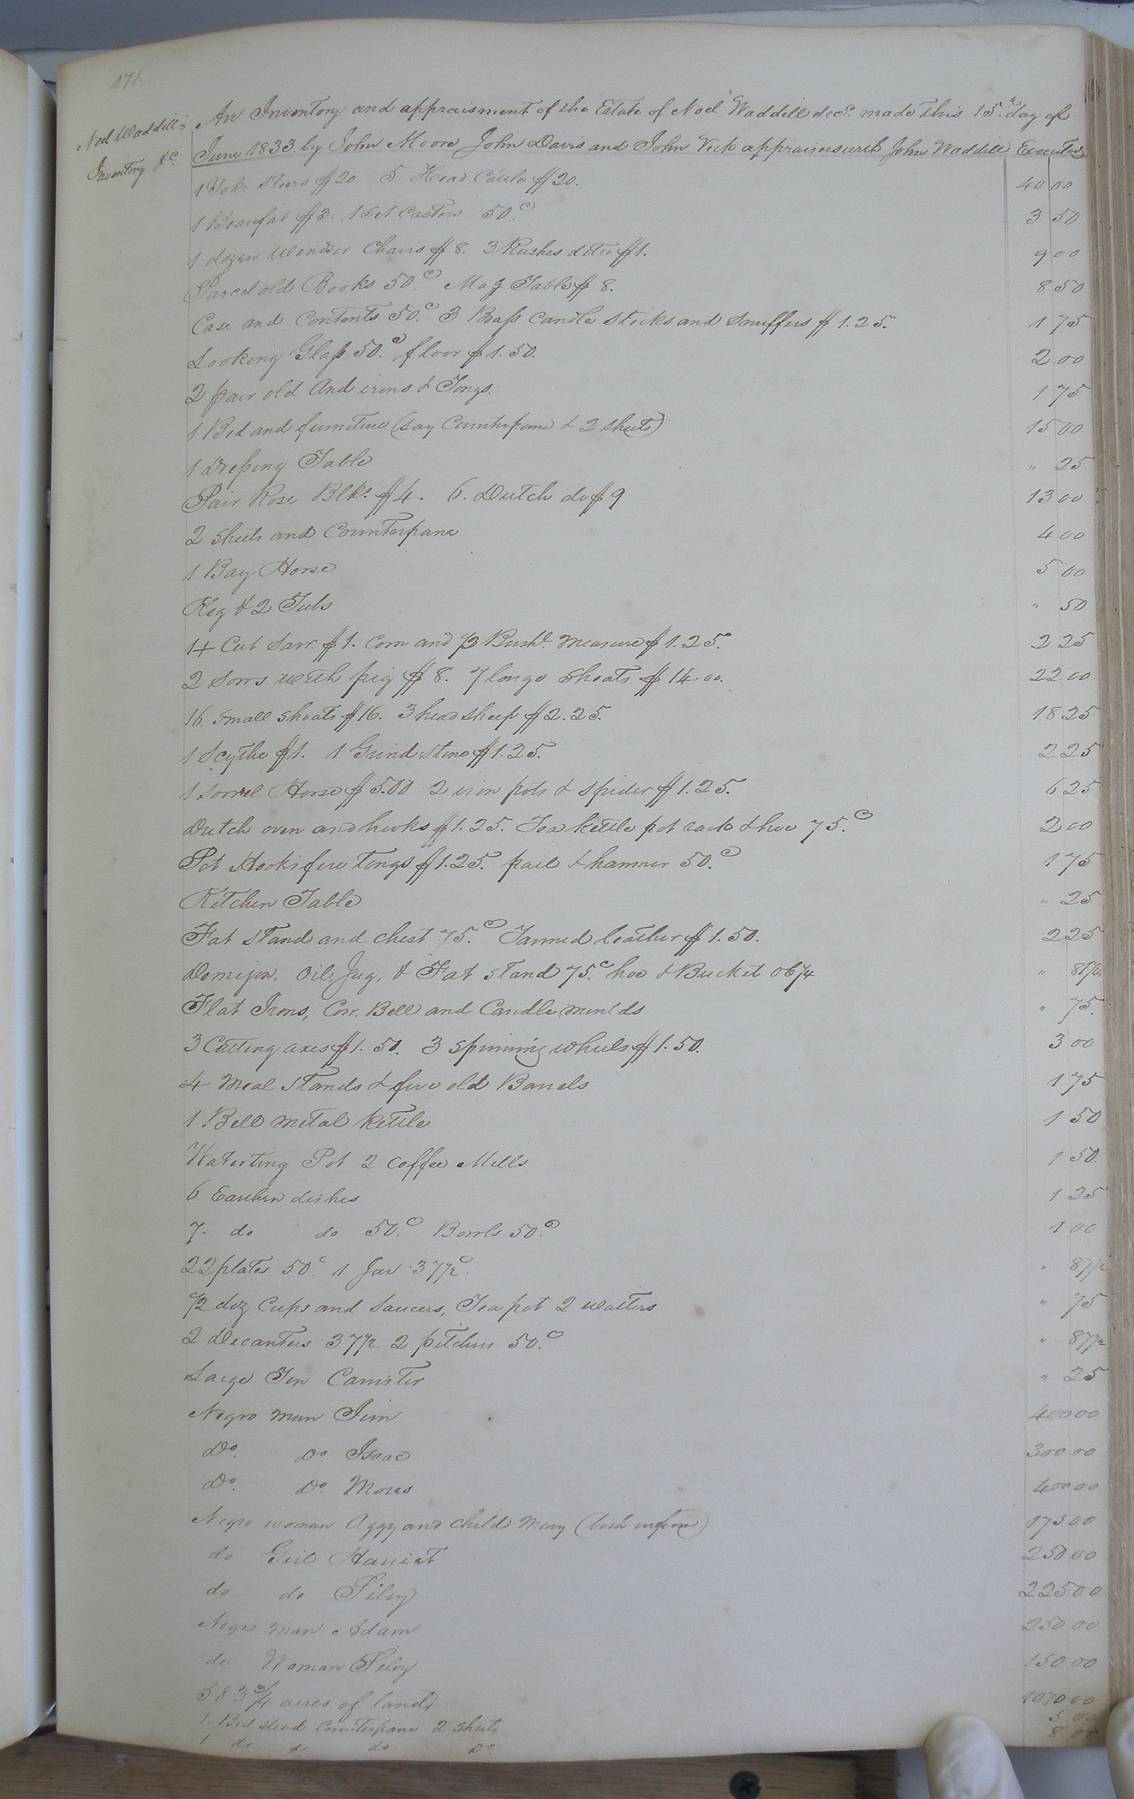 171.
Noel Waddill's
Inventory &c.
An Inventory and appraisment of the Estate of Noel Waddill decd. made this 15th day of
June 1833 by John Moore John Davis and John Vick appraisers with John Waddill Executor
1 Yoke Steers $20. 5 Head Cattle $20. 40 00
1 Beaufat $3. 1 Set Castors 50.c 3 50
1 dozen Windsor Chairs $8. 3 Rushes ditto $1. 9 00
Parcel old Books 50.c Mag Table $8. 8 50
Case and Contents 50.c 3 Brass Candle sticks and Snuffers $1.25. 1 75
Looking Glass 50.c floor $1.50. 2 00
2 pair old And irons & Tongs. 1 75
1 Bed and furniture (say Counterpane & 2 sheets) 15 00
1 Dressing Table " 25
Pair Rose Blkts $4. 6. Dutch do $9 13 00
2 Sheets and Counterpane 4 00
1 Bay Horse 5 00
Keg & 2 Tubs " 50
14 Cut Saw. $1. Corn and 1/2 Bushl. Measure $1.25. 2 25
2 Sows with pig $8. 7 large Shoats $14.00. 22 00
16 Small Shoats $16. 3 head sheep $2.25. 18 25
1 Scythe $1. 1 Grind Stone $1.25. 2 25
1 Sorrel Horse $5.00 2 iron pots & spider $1.25. 6 25
Dutch oven and hooks $1.25. Tea kettle pot rack & hoe 75.c 2 00
Pot Hooks fire Tongs $1.25. pail & hammer 50.c 1 75
Kitchen Table " 25
Fat Stand and chest 75.c Tanned leather $1.50. 2 25
Demijon. Oil, Jug, & Fat stand 75.c hoe & Bucket 06 1/4 " 81 1/4
Flat Irons, Cow Bell and Candle moulds " 75.
3 Cutting axes $1.50. 3 Spinning wheels $1.50. 3 00
4 Meal Stands & five old Barrels 1 75
1 Bell metal kettle 1 50
Waterting Pot 2 Coffee Mills 1 50
6 Earthen dishes 1 25
7. do do 50.c Bowls 50.c 1 00
22 plates 50c. 1 Jar 37 1/2c. " 87 1/2
1/2 doz Cups and Saucers, Tea pot 2 waiters " 75
2 Decanters 37 1/2. 2 pitchers 50.c " 87 1/2
Large Tin Canister " 25
Negro man Jim 400 00
Do. Do. Isaac 300 00
Do. Do. Moses 400 00
Negro woman Aggy and child Mary (both infirm) 175 00
do Girl Harriet 250 00
do do Silvy 225 00
Negro man Adam 250 00
do Woman Silvy 150 00
583 3/4 acres of land 1070 00
1. Bed stead Counterpane 2 Sheets 5 00
1 do do do Do 8 00